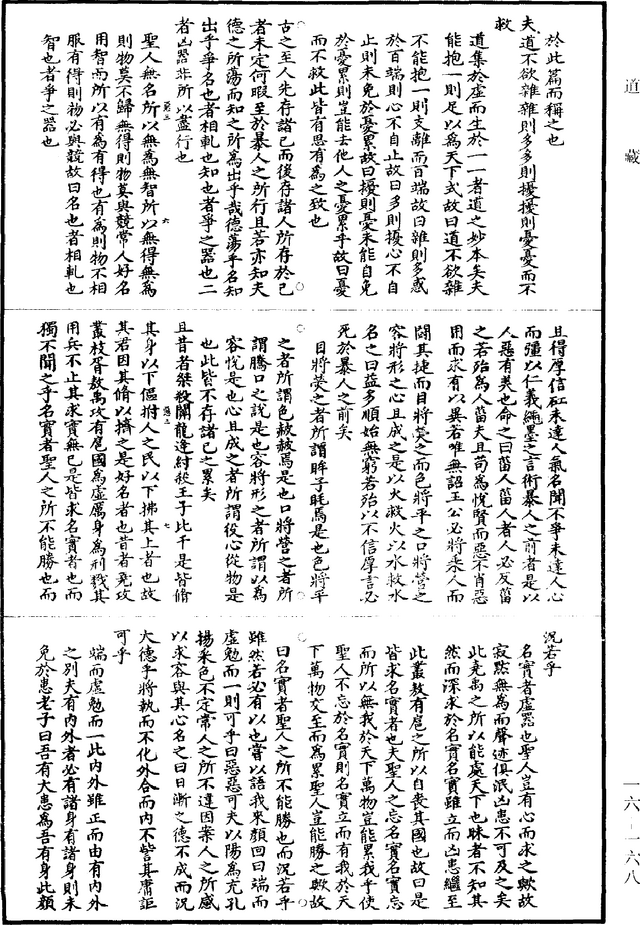 道藏
於此篇而稱之也
夫道不欲雜雜則多多則擾擾則憂憂而不
救
道集於虛而生於一一者道之妙本矣夫
能抱一則足以為天下式故曰道不欲雜
不能抱一則支離而百端故曰雜則多惑
於百端則心不自止故曰多則擾心不自
止則未免於憂累故曰擾則憂未能自免
於憂累則豈能去他人之憂累乎故曰憂
而不救此皆有思有為之致也
古之至人先存諸己而後存諸人所存於己
者未定何暇至於暴人之所行且若亦知夫
德之所蕩而知之所為出乎哉德蕩乎名知
出乎爭名也者相軋也知也者爭之器也二
者凶器非所以盡行也
聖人無名所以無為無智所以無得無為
則物莫不歸無得則物莫與競常人好名
用智而所以有為有得也有為則物不相
服有得則物必與競故曰名也者相軋也
智也者爭之器也
且得厚信矼未達人氣名聞不爭未達人心
而彊以仁義繩墨之言術暴人之前者是以
人惡有美也命之曰菑人菑人者人必反菑
之若殆為人菑夫且苟為悅賢而惡不肖惡
用而求有以異若唯無詔王公必將乘人而
鬬其捷而目將熒之而色將平之口將營之
容將形之心且成之是以火救火以水救水
名之曰益多順始無窮若殆以不信厚言必
死於暴人之前矣
目將熒之者所謂眸子眊焉是也色將平
之者所謂色赧赧焉是也口將營之者所
謂騰口之說是也容將形之者所謂以為
容悅是也心且成之者所謂役心從物是
也此皆不存諸己之累矣
且昔者桀殺關龍逄紂殺王子比干是皆脩
其身以下傴拊人之民以下拂其上者也故
其君因其脩以擠之是好名者也昔者堯攻
叢枝胥敖禹攻有扈國為虛厲身為刑戮其
用兵不止其求實無已是皆求名實者也而
獨不聞之乎名實者聖人之所不能勝也而
況若乎
名實者虛器也聖人豈有心而求之歟故
寂默無為而聲迹俱泯凶患不可及之矣
此堯禹之所以能處天下也昧者不知其
然而深求於名實名實雖立而凶患繼至
此叢敖有扈之所以自喪其國也故曰是
皆求名實者也夫聖人之忘名實名實忘
而所以無我於天下萬物豈能累我乎使
聖人不忘於名實則名實立而有我於天
下萬物交至而為累聖人豈能勝之歟故
曰名實者聖人之所不能勝也而況若乎
雖然若必有以也嘗以語我來顏回曰端而
虛勉而一則可乎曰惡惡可夫以陽為充孔
揚采色不定常人之所不違因案人之所感
以求容與其心名之曰日漸之德不成而況
大德乎將執而不化外合而內不訾其庸詎
可乎
端而虛勉而一此內外雖正而由有內外
之別夫有內外者必有諸身有諸身則未
免於患老子曰吾有大患為吾有身此顏
一六－一六八